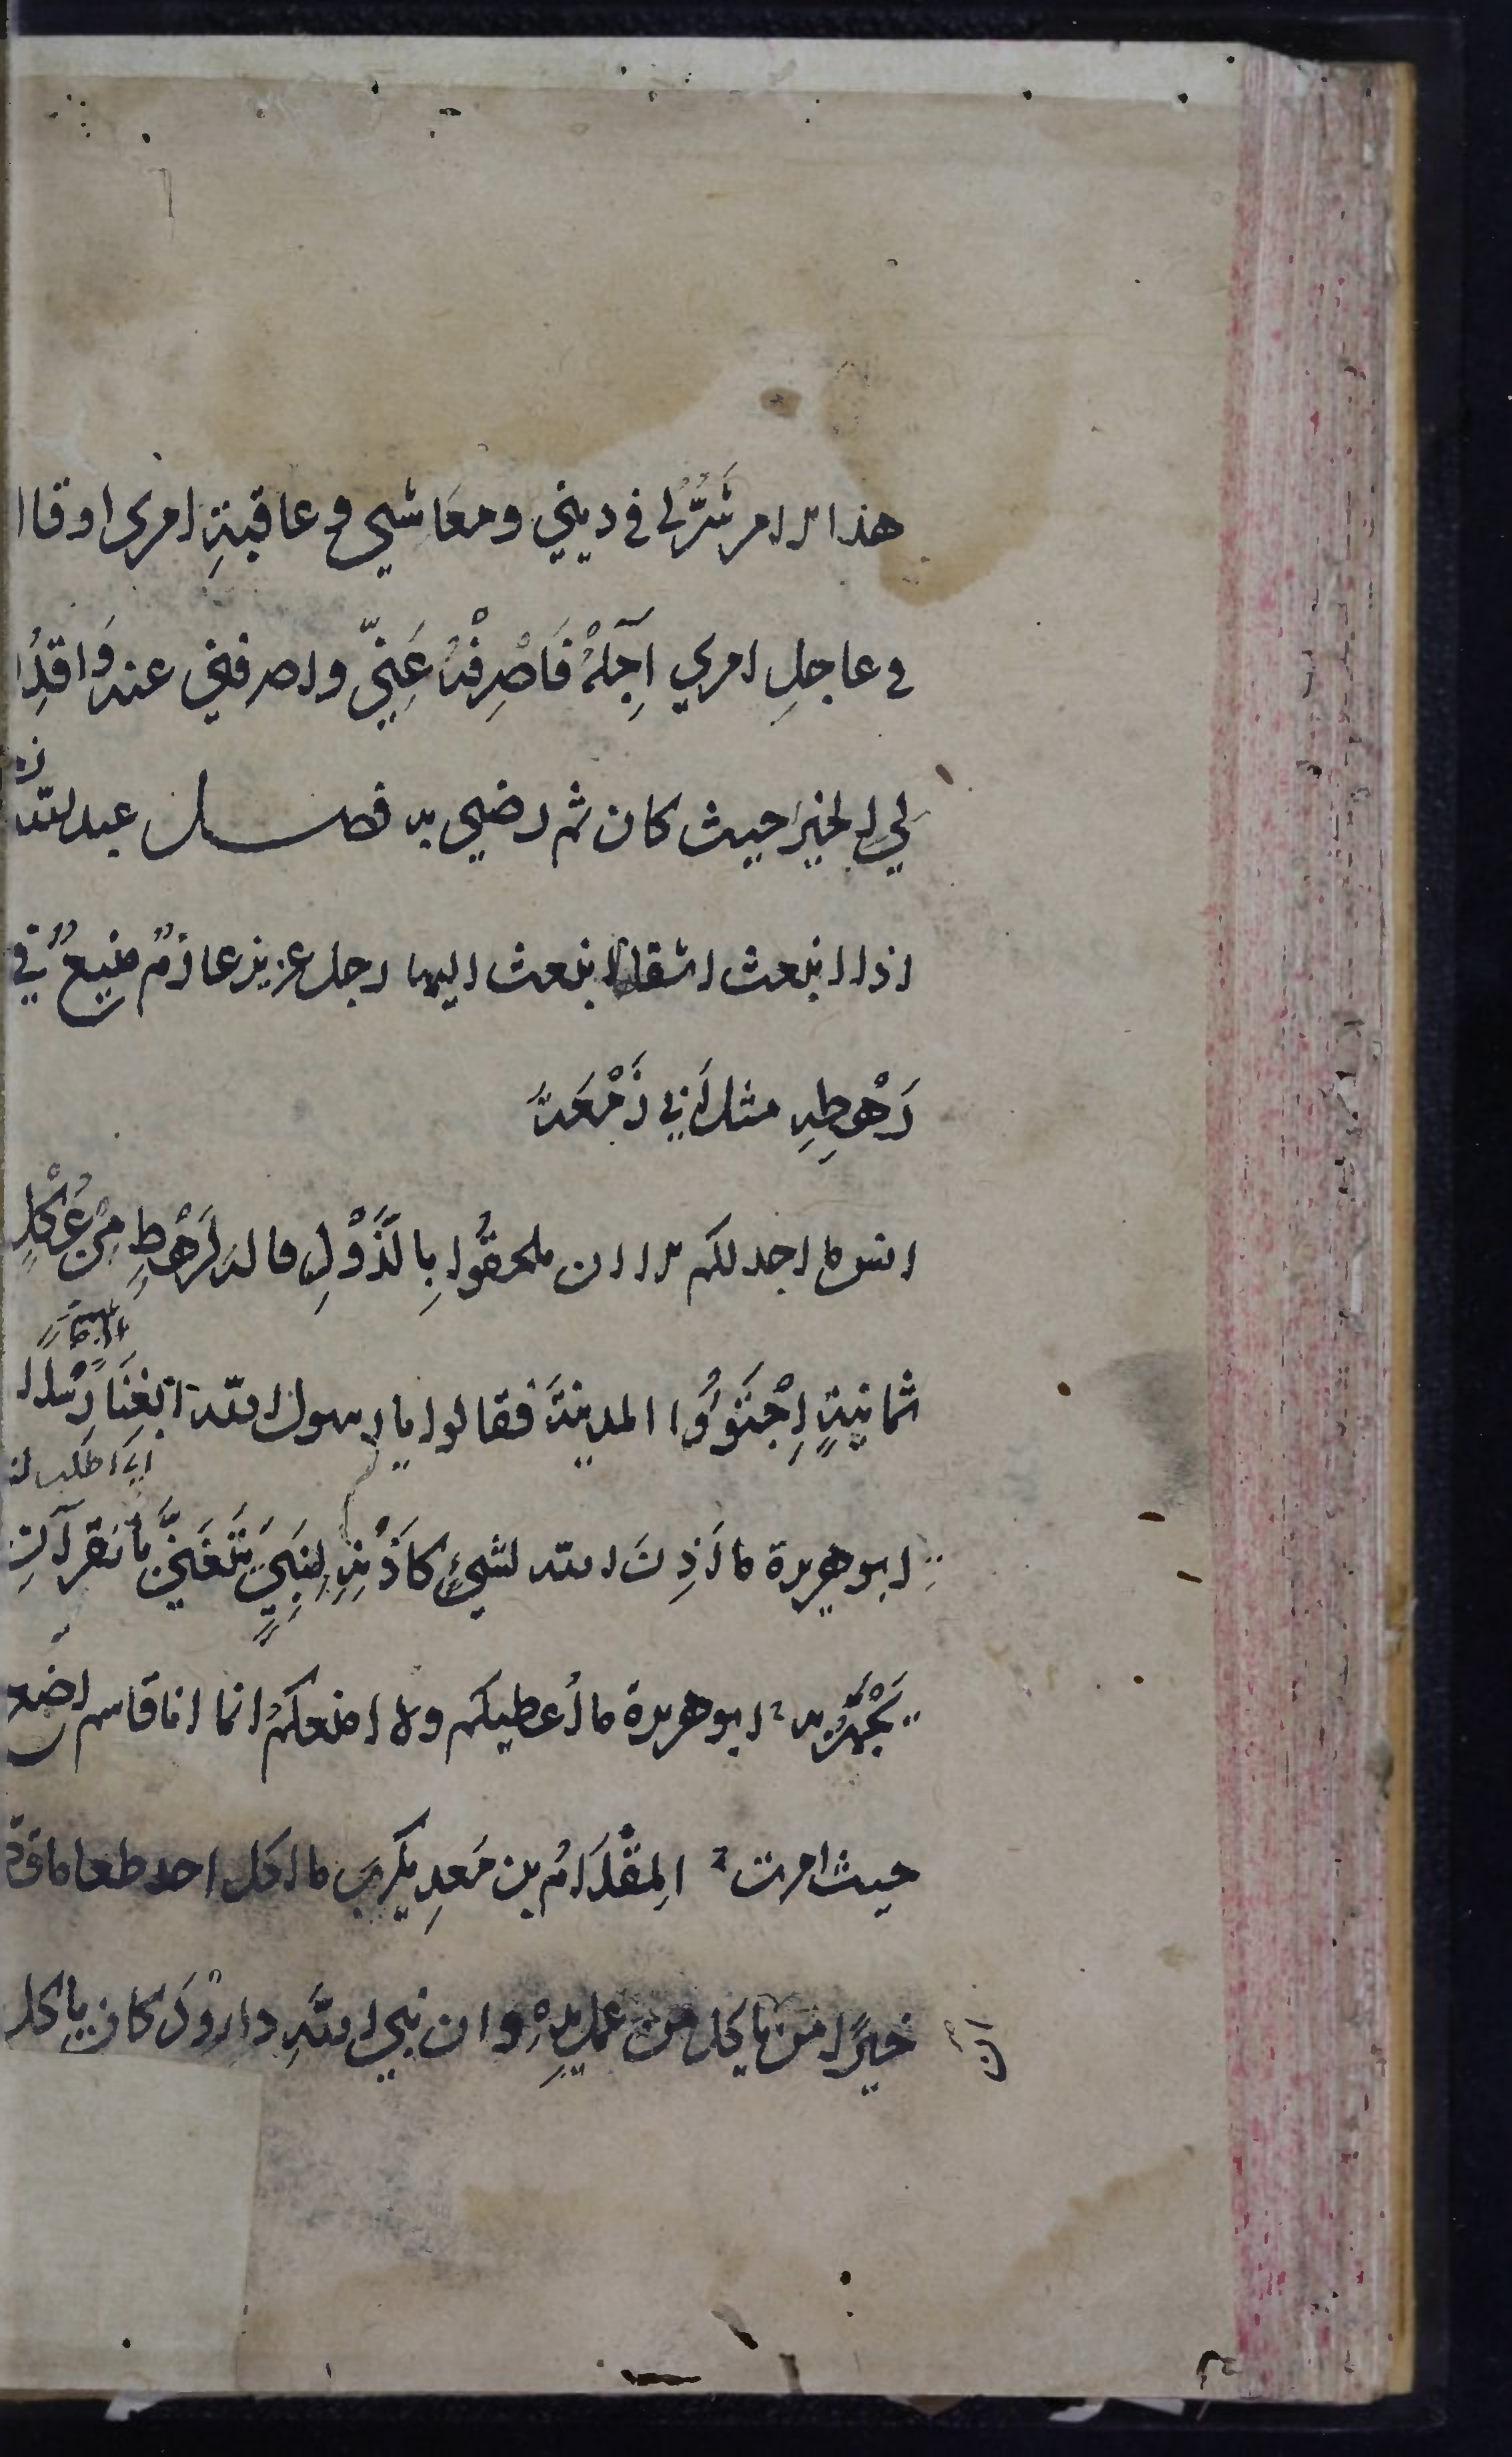 هذا الامر شَرٌّ لي في ديني ومعَاشي وعاقبةِ امري اوقا
في عاجلِ امري آجِلِهْ فَاصْرِفْهُ عَنِّي واصرفني عنه وَاقدِ
لي الخير حيث كان ثم رضني به فصل عبد الله
اذا انبعث اشقاها انبعث اليها رجل عزيز عارمٌ منيعٌ في
رَهْطِهِ مثل أبي زَمْعَةَ
انس ما اجد لكم الا ان تلحقُوا بِالذَّوْدِ قاله لِرَهْطٍ مِنْ عُكْلٍ
ثمانيةٍ اِجْتَوَوُا المدينةَ فقالوا يا رسول الله ابْغِنَا رِسْلًا
اي اطلب لنا
ابو هريرة ما أَذِنَ الله لشيءٍ كَأَذَنِهِ لِنَبِيٍّ يَتَغَنَّى بالقرآنِ
يَجْهَرُ به ابو هريرة ما أعطيكم ولا امنعكمُ انما انا قاسم اضَع
حيث امرت المِقْدَامُ بن مَعدِ يكَرِبَ ما اكل احد طعاما قطّ
خيرًا من ان ياكل من عمل يدِهِ وان نبي اللهِ داوُوْدَ كان ياكل